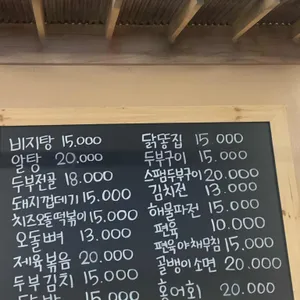 비지탕 15.000
알탕 20.000
두부전골 18.000
돼지껍데기 15.000
치즈오돌떡볶이 15.000
오돌뼈 13.000
제육볶음 20.000
두부김치 15.000
15.000
닭똥집 15.000
두부구이 15.000
스팸두부구이 20.000
김치전 13.000
해물파전 15.000
편육 10.000
편육야채무침 15.000
골뱅이소면 20.000
홍어회 20.000